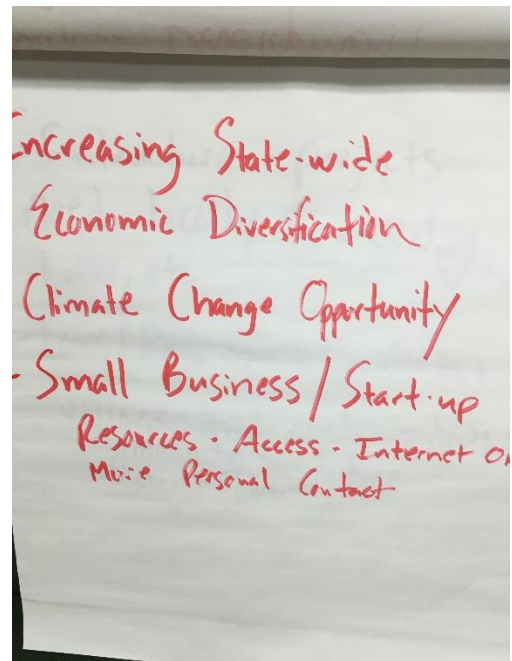 Increasing State-wide
Economic Diversification
Climate Change Opportunity
- Small Business / Start-up
Resources - Access - Internet Or
More Personal Contact